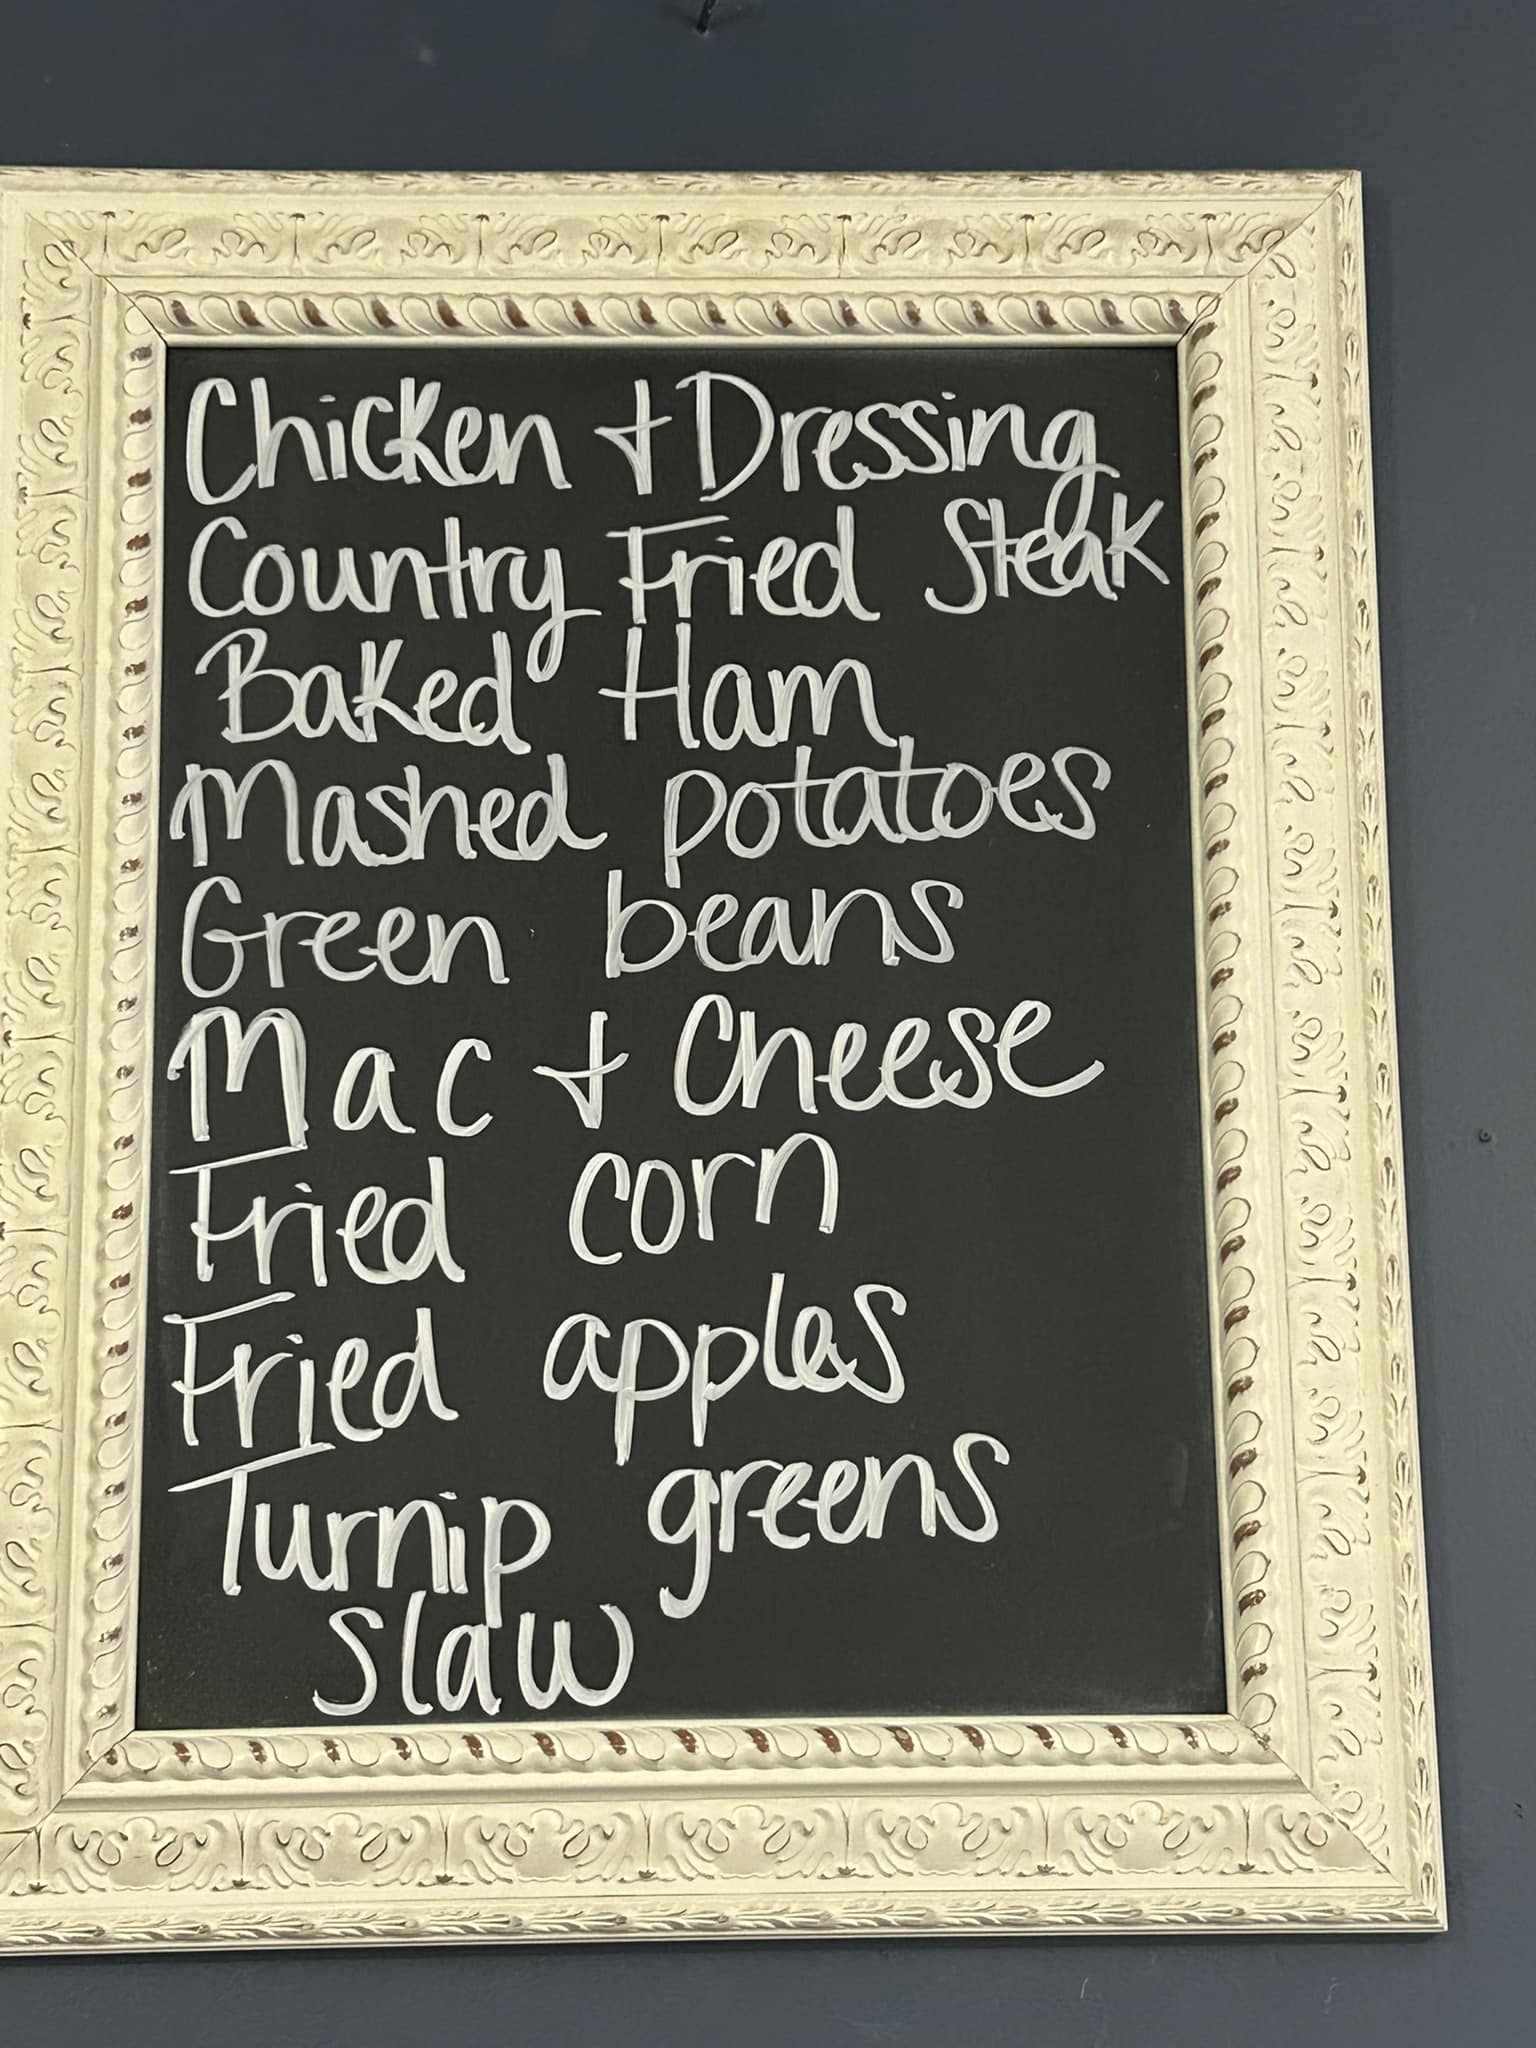 Chicken + Dressing
Country Fried Steak
Baked Ham
Mashed potatoes
Green beans
Mac + Cheese
Fried corn
Fried apples
Turnip greens
slaw